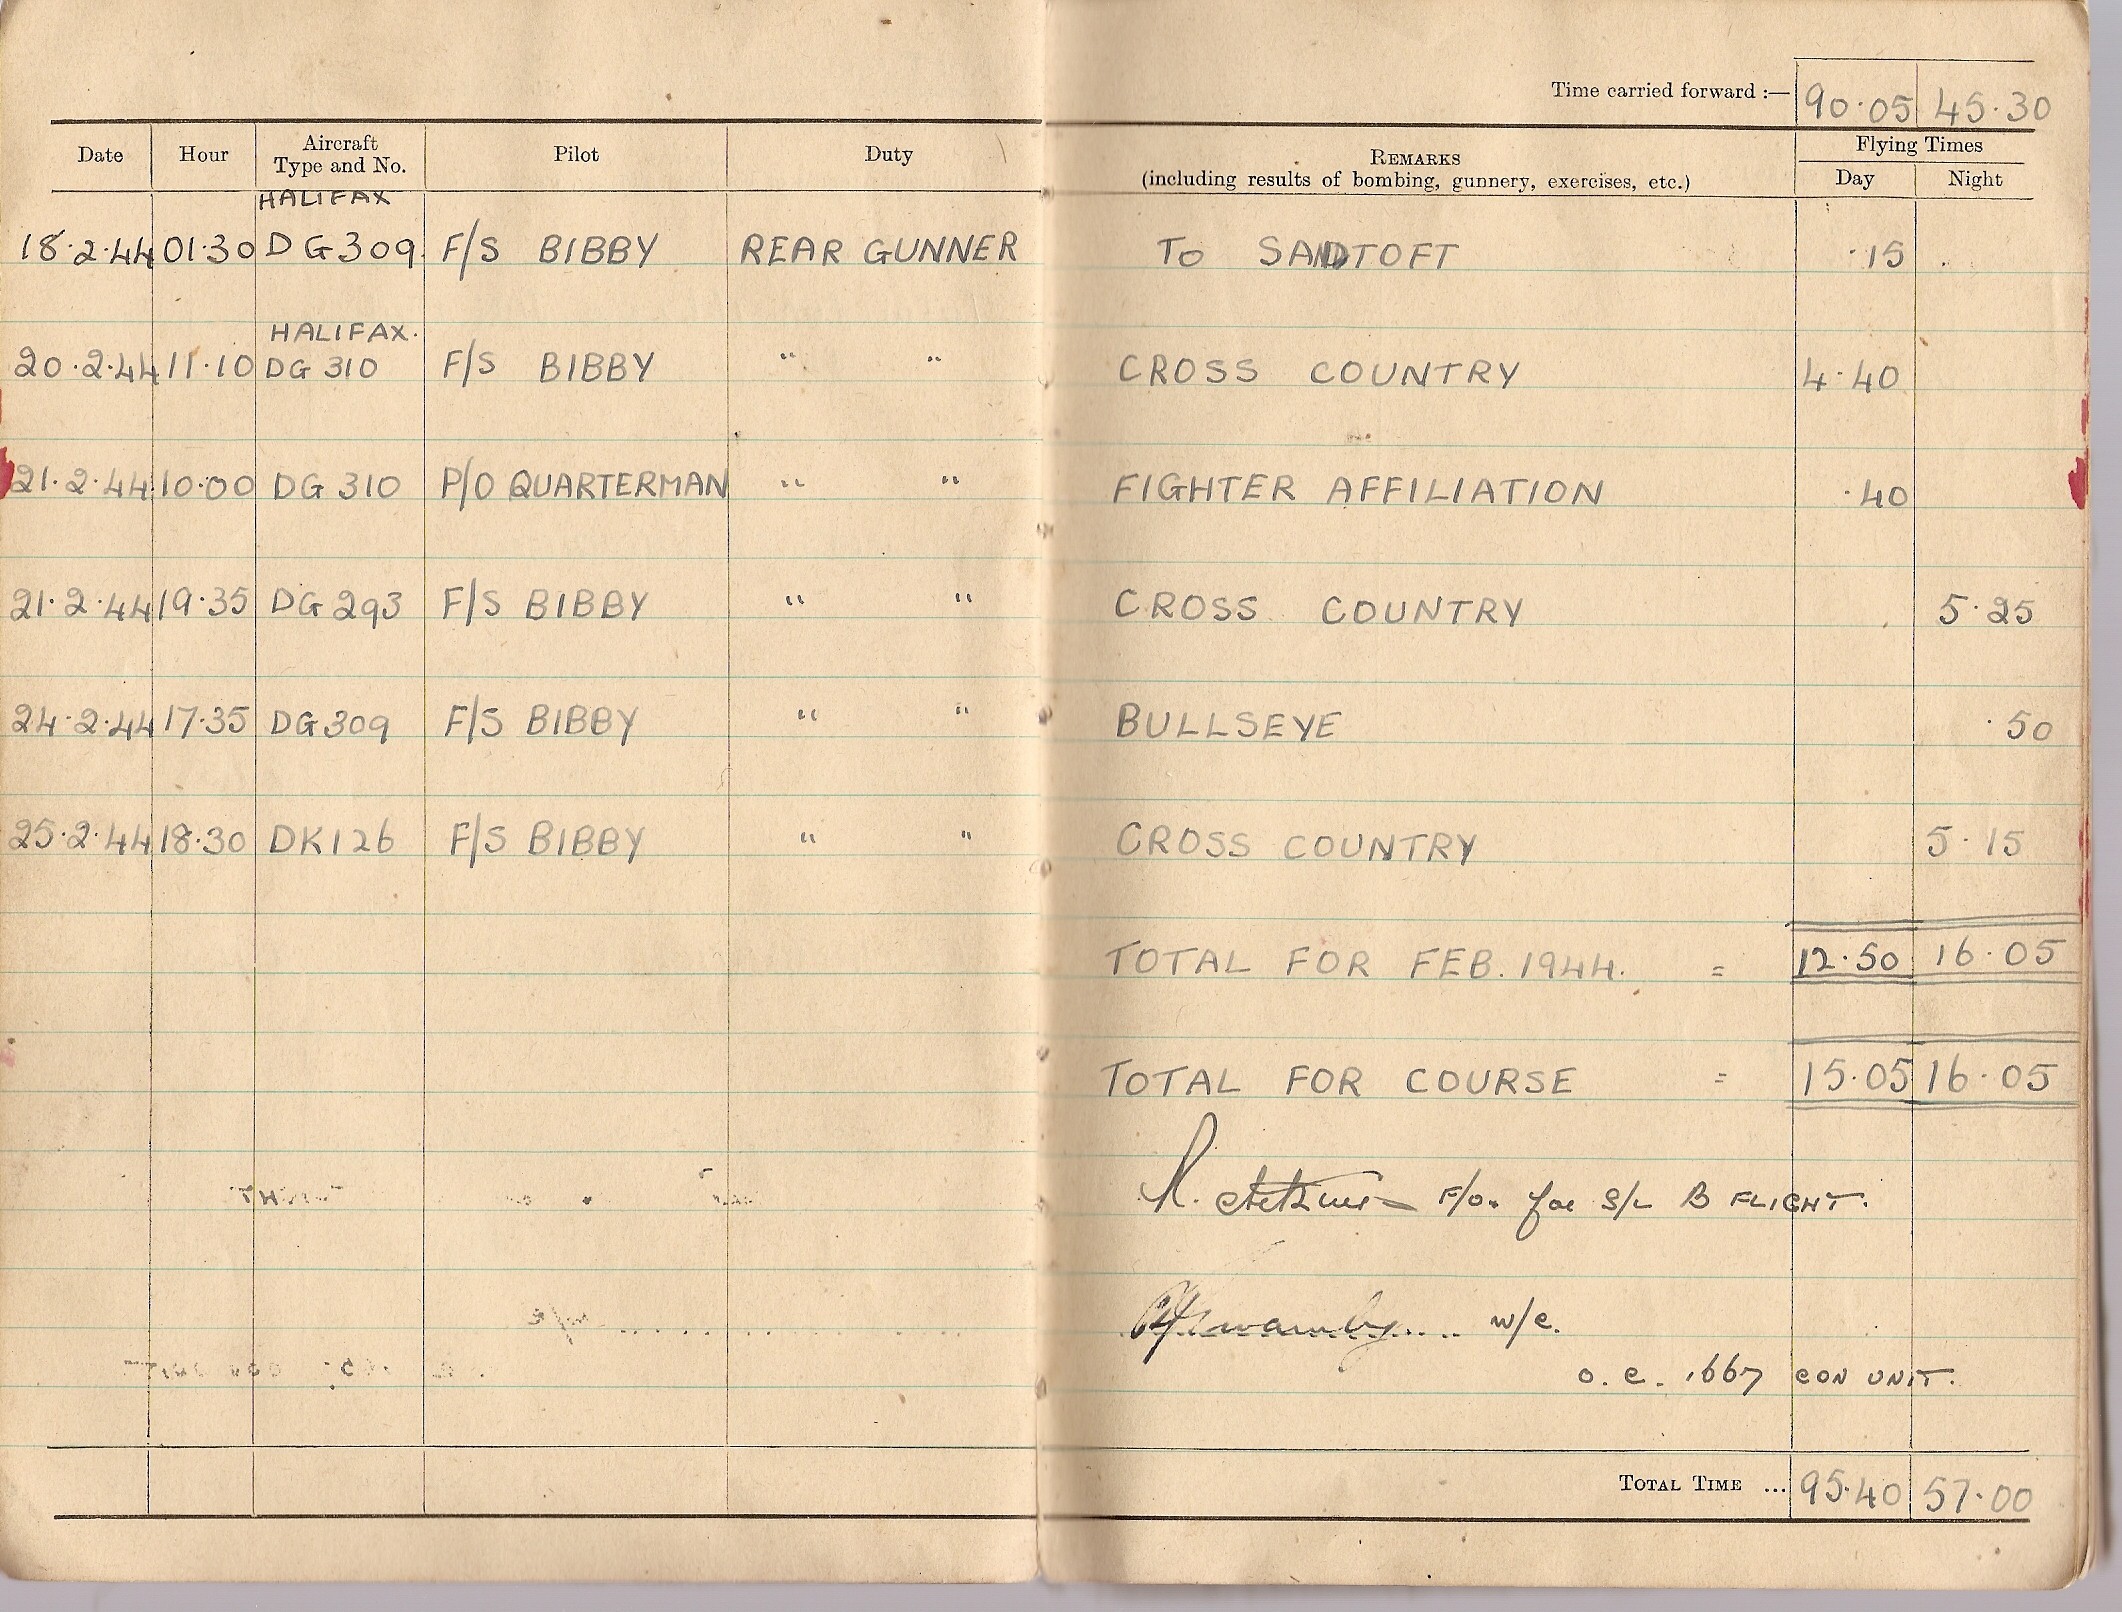 Time carried forward :— 90·05 45·30
Date Hour Aircraft Type and No. Pilot Duty REMARKS (including results of bombing, gunnery, exercises, etc.) Flying Times Day Night
HALIFAX
18·2·44 01·30 DG309 F/S BIBBY REAR GUNNER To SANDTOFT ·15
HALIFAX.
20·2·44 11·10 DG 310 F/S BIBBY " " CROSS COUNTRY 4·40
21·2·44 10·00 DG 310 P/O QUARTERMAN " " FIGHTER AFFILIATION ·40
21·2·44 19·35 DG 293 F/S BIBBY " " CROSS COUNTRY 5·25
24·2·44 17·35 DG309 F/S BIBBY " " BULLSEYE ·50
25·2·44 18·30 DK126 F/S BIBBY " " CROSS COUNTRY 5·15
TOTAL FOR FEB. 1944. = 12·50 16·05
TOTAL FOR COURSE = 15·05 16·05
F/O. for S/L B FLIGHT.
W/C.
O.C. 1667 CON UNIT.
TOTAL TIME ... 95·40 57·00